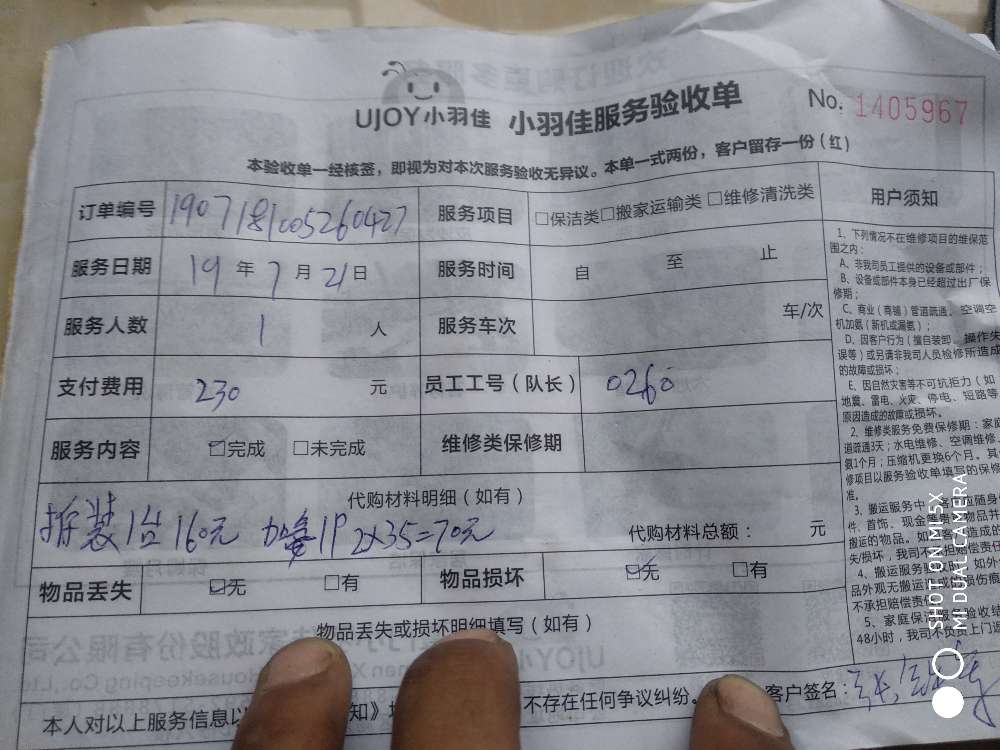 UJOY小羽佳 小羽佳服务验收单 No. 1405967
本验收单一经核签，即视为对本次服务验收无异议。本单一式两份，客户留存一份（红）
订单编号 1907181005260427 服务项目 □保洁类□搬家运输类 □维修清洗类 用户须知
服务日期 19 年 7 月 21 日 服务时间 自 至 止
服务人数 1 人 服务车次 车/次
支付费用 230 元 员工工号（队长） 0260
服务内容 ☑完成 □未完成 维修类保修期
代购材料明细（如有）
拆装1台160元 加氨1P 2x35=70元 代购材料总额： 元
物品丢失 ☑无 □有 物品损坏 ☑无 □有
物品丢失或损坏明细填写（如有）
本人对以上服务信息以 知》 不存在任何争议纠纷。 客户签名：
1、下列情况不在维修项目的维保范
围之内：
A、非我司员工提供的设备或部件；
B、设备或部件本身已经超过出厂保
修期；
C、商业（商铺）管道疏通、空调空
机加氨（新机或漏氨）；
D、因客户行为（擅自装卸、操作失
误等）或另请非我司人员检修所造成
的故障或损坏；
E、因自然灾害等不可抗拒力（如
地震、雷电、火灾、停电、短路等
原因造成的故障或损坏。
2、维修类服务免费保修期：家庭
道疏通3天；水电维修、空调维修、
氨1个月；压缩机更换6个月。其
修项目以服务验收单填写的保修
准。
3、搬运服务中，客 应随身
件、首饰、现金等贵 物品并
搬运的物品。如 客 造成的
失/损坏，我司不 担赔偿责任
4、搬运服务验收 如外
品外观无搬运 或 损伤痕
不承担赔偿责
5、家庭保洁 务验收结
48小时，我司不负责上门返
SHOT ON MI 5X
MI DUAL CAMERA